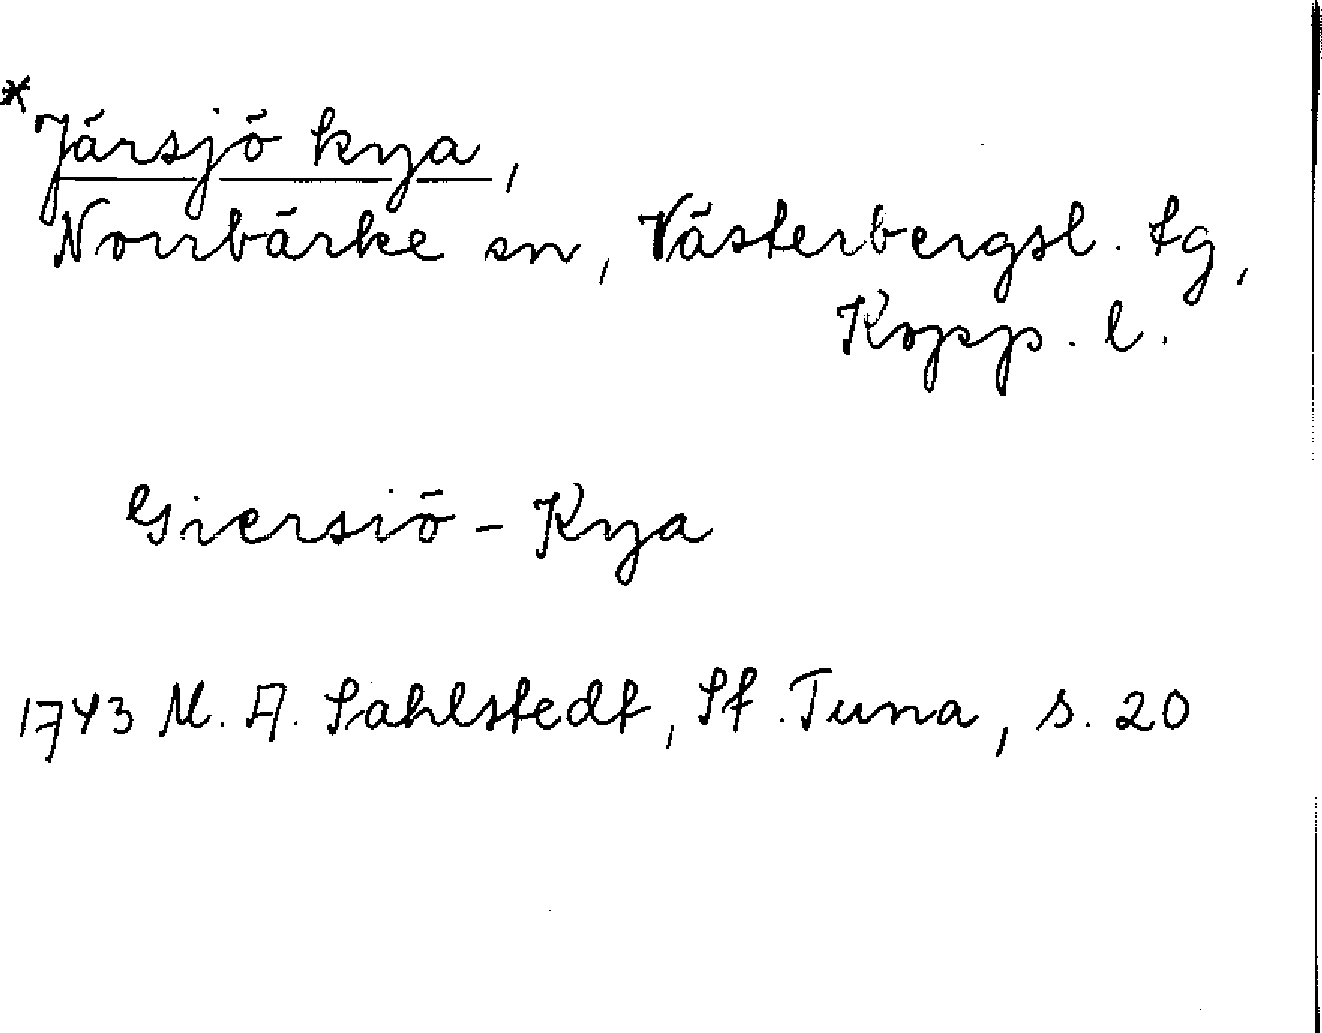 * Järsjö kya,
Norrbärke sn, Västerbergsl. tg,
Kopp. l.
Giersiö - Kya
1743 M. A. Sahlstedt, St. Tuna, s. 20